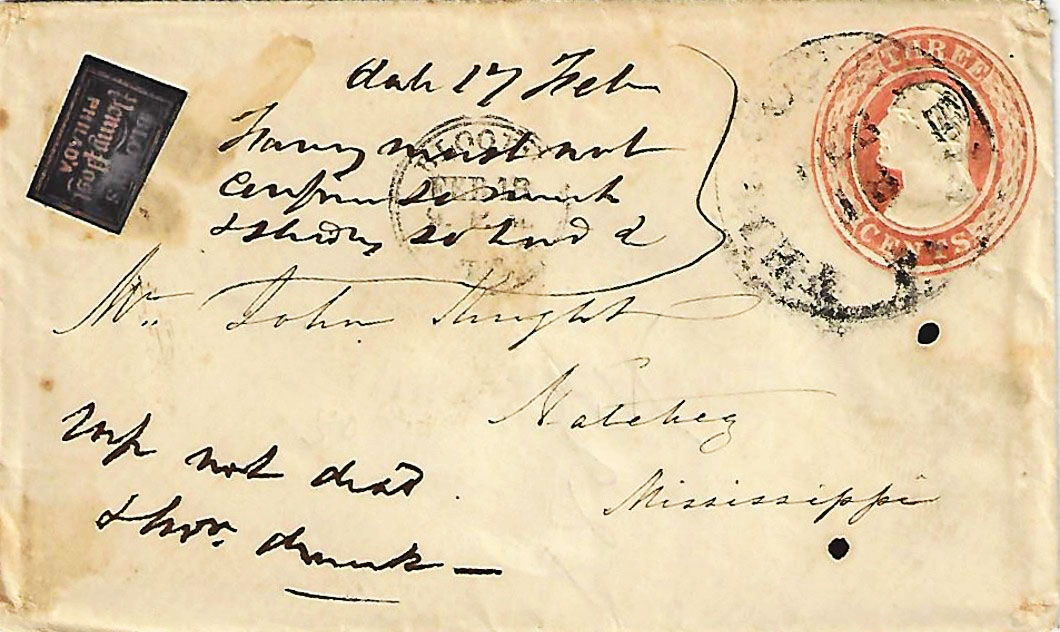 date 17 Feb
Fanny must not
confine so much
& study so hard &
Mr. John Knight
Natchez
Mississippi
not dead
& hon. drunk —
THREE
CENTS
BLOOD'S
Penny Post
PHILADA
FEB 18
PHILA